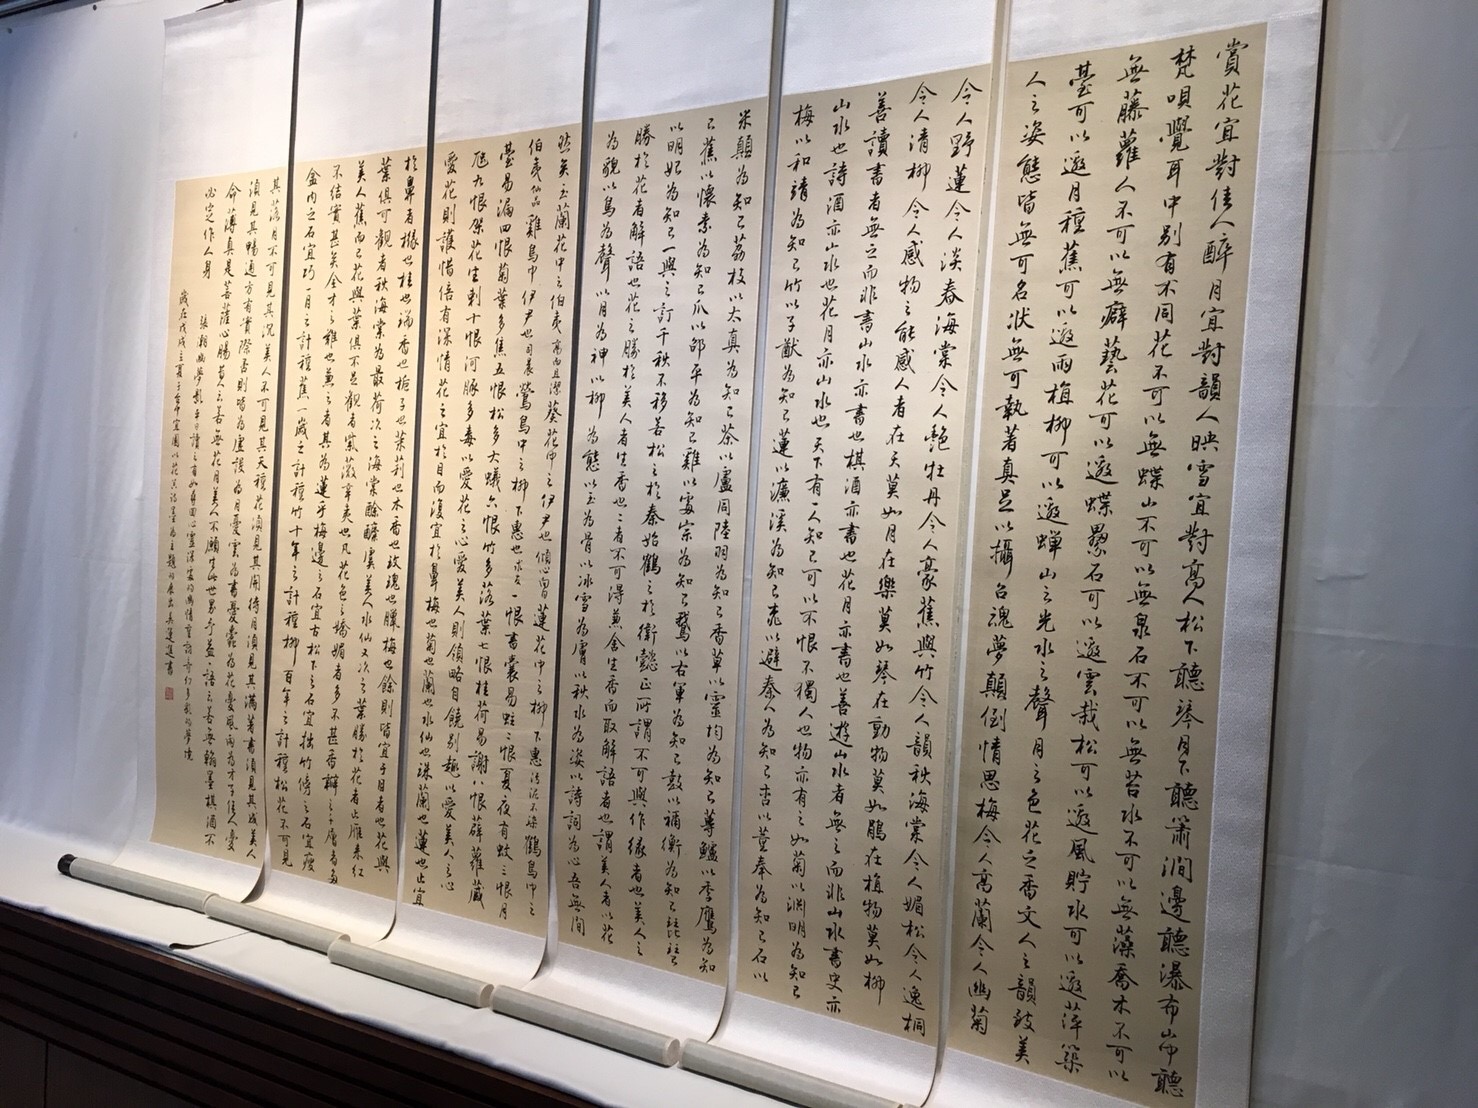 賞花宜對佳人醉月宜對韻人映雪宜對高人松下聽琴月下聽簫澗邊聽瀑布山中聽
梵唄覺耳中別有不同花不可以無蝶山不可以無泉石不可以無苔水不可以無藻喬木不可以
無藤蘿人不可以無癖藝花可以邀蝶壘石可以邀雲栽松可以邀風貯水可以邀萍築
臺可以邀月種蕉可以邀雨植柳可以邀蟬山之光水之聲月之色花之香文人之韻致美
人之姿態皆無可名狀無可執著真足以攝召魂夢顛倒情思梅令人高蘭令人幽菊
令人野蓮令人淡春海棠令人艷牡丹令人豪蕉與竹令人韻秋海棠令人媚松令人逸桐
令人清柳令人感物之能感人者在天莫如月在樂莫如琴在動物莫如鵑在植物莫如柳
善讀書者無之而非書山水亦書也棋酒亦書也花月亦書也善遊山水者無之而非山水書史亦
山水也詩酒亦山水也花月亦山水也天下有一人知己可以不恨不獨人也物亦有之如菊以淵明為知己
梅以和靖為知己竹以子猷為知己蓮以濂溪為知己桃以避秦人為知己杏以董奉為知己石以
米顛為知己荔枝以太真為知己茶以盧仝陸羽為知己香草以靈均為知己蓴鱸以季鷹為知
己蕉以懷素為知己瓜以邵平為知己雞以處宗為知己鵝以右軍為知己鼓以禰衡為知己琵琶
以明妃為知己一與之訂千秋不移若松之於秦始鶴之於衛懿正所謂不可與作緣者也美人之
勝於花者解語也花之勝於美人者生香也二者不可得兼舍生香而取解語者也所謂美人者以花
為貌以鳥為聲以月為神以柳為態以玉為骨以冰雪為膚以秋水為姿以詩詞為心吾無間
然矣玉蘭花中之伯夷高而且潔葵花中之伊尹也傾心向日蓮花中之柳下惠污泥不染鶴鳥中之
伯夷仙品雞鳥中伊尹也司晨鶯鳥中之柳下惠也求友一恨書囊易蛀二恨夏夜有蚊三恨月
臺易漏四恨菊葉多焦五恨松多大蟻六恨竹多落葉七恨桂荷易謝八恨薜蘿藏
虺九恨架花生刺十恨河豚多毒以愛花之心愛美人則領略自饒別趣以愛美人之心
愛花則護惜倍有深情花之宜於目而復宜於鼻梅也菊也蘭也水仙也珠蘭也蓮也止宜
於鼻者櫞也桂也瑞香也梔子也茉莉也木香也玫瑰也臘梅也餘則皆宜于目者也花與
葉俱可觀者秋海棠為最荷次之海棠酴醾虞美人水仙又次之葉勝於花者止雁來紅
美人蕉而已花與葉俱不足觀者紫薇辛夷也凡花色之嬌媚者多不甚香瓣之千層者多
不結實甚矣全才之難也兼之者其為蓮乎梅邊之石宜古松下之石宜拙竹傍之石宜瘦
盆內之石宜巧一月之計種蕉一歲之計種竹十年之計種柳百年之計種松花不可見
其落月不可見其沉美人不可見其夭種花須見其開待月須見其滿著書須見其成美人
須見其暢適方有實際否則皆為虛設為月憂雲為書憂蠹為花憂風雨為才子佳人憂
命薄真是菩薩心腸昔人云若無花月美人不願生此世界予益一語云若無翰墨棋酒不
必定作人身
張潮幽夢影
歲在戊戌之夏